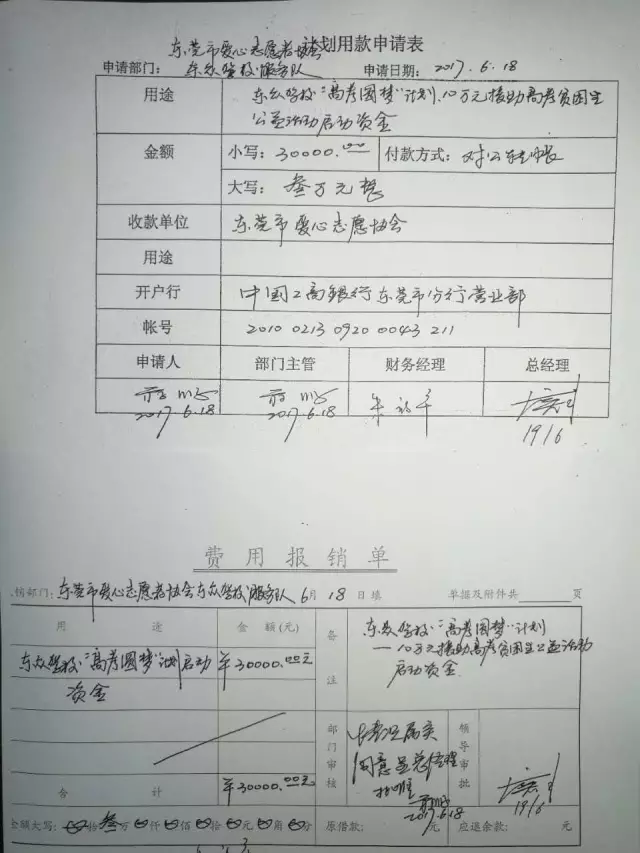 东莞市爱心志愿者协会计划用款申请表
申请部门：东众驾校服务队 申请日期：2017.6.18
用途 东众驾校"高考圆梦"计划、10万元援助高考贫困生
公益活动启动资金
金额 小写：30000.00 付款方式：对公转帐
大写：叁万元整
收款单位 东莞市爱心志愿协会
用途
开户行 中国工商银行东莞市分行营业部
帐号 2010 0213 0920 0043 211
申请人 部门主管 财务经理 总经理
2017.6.18 2017.6.18
19/6
费用报销单
销部门：东莞市爱心志愿者协会东众驾校服务队 6月 18日填 单据及附件共 页
用途 金额（元） 备注
东众驾校"高考圆梦"计划启动 ¥30000.00元
资金
东众驾校"高考圆梦"计划
—10万元援助高考贫困生公益活动
启动资金
部门审核 情况属实
同意呈总经理
2017.6.18
领导审批
19/6
合计 ¥30000.00元
金额大写：拾叁万仟佰拾元角分 原借款： 元 应退余款： 元